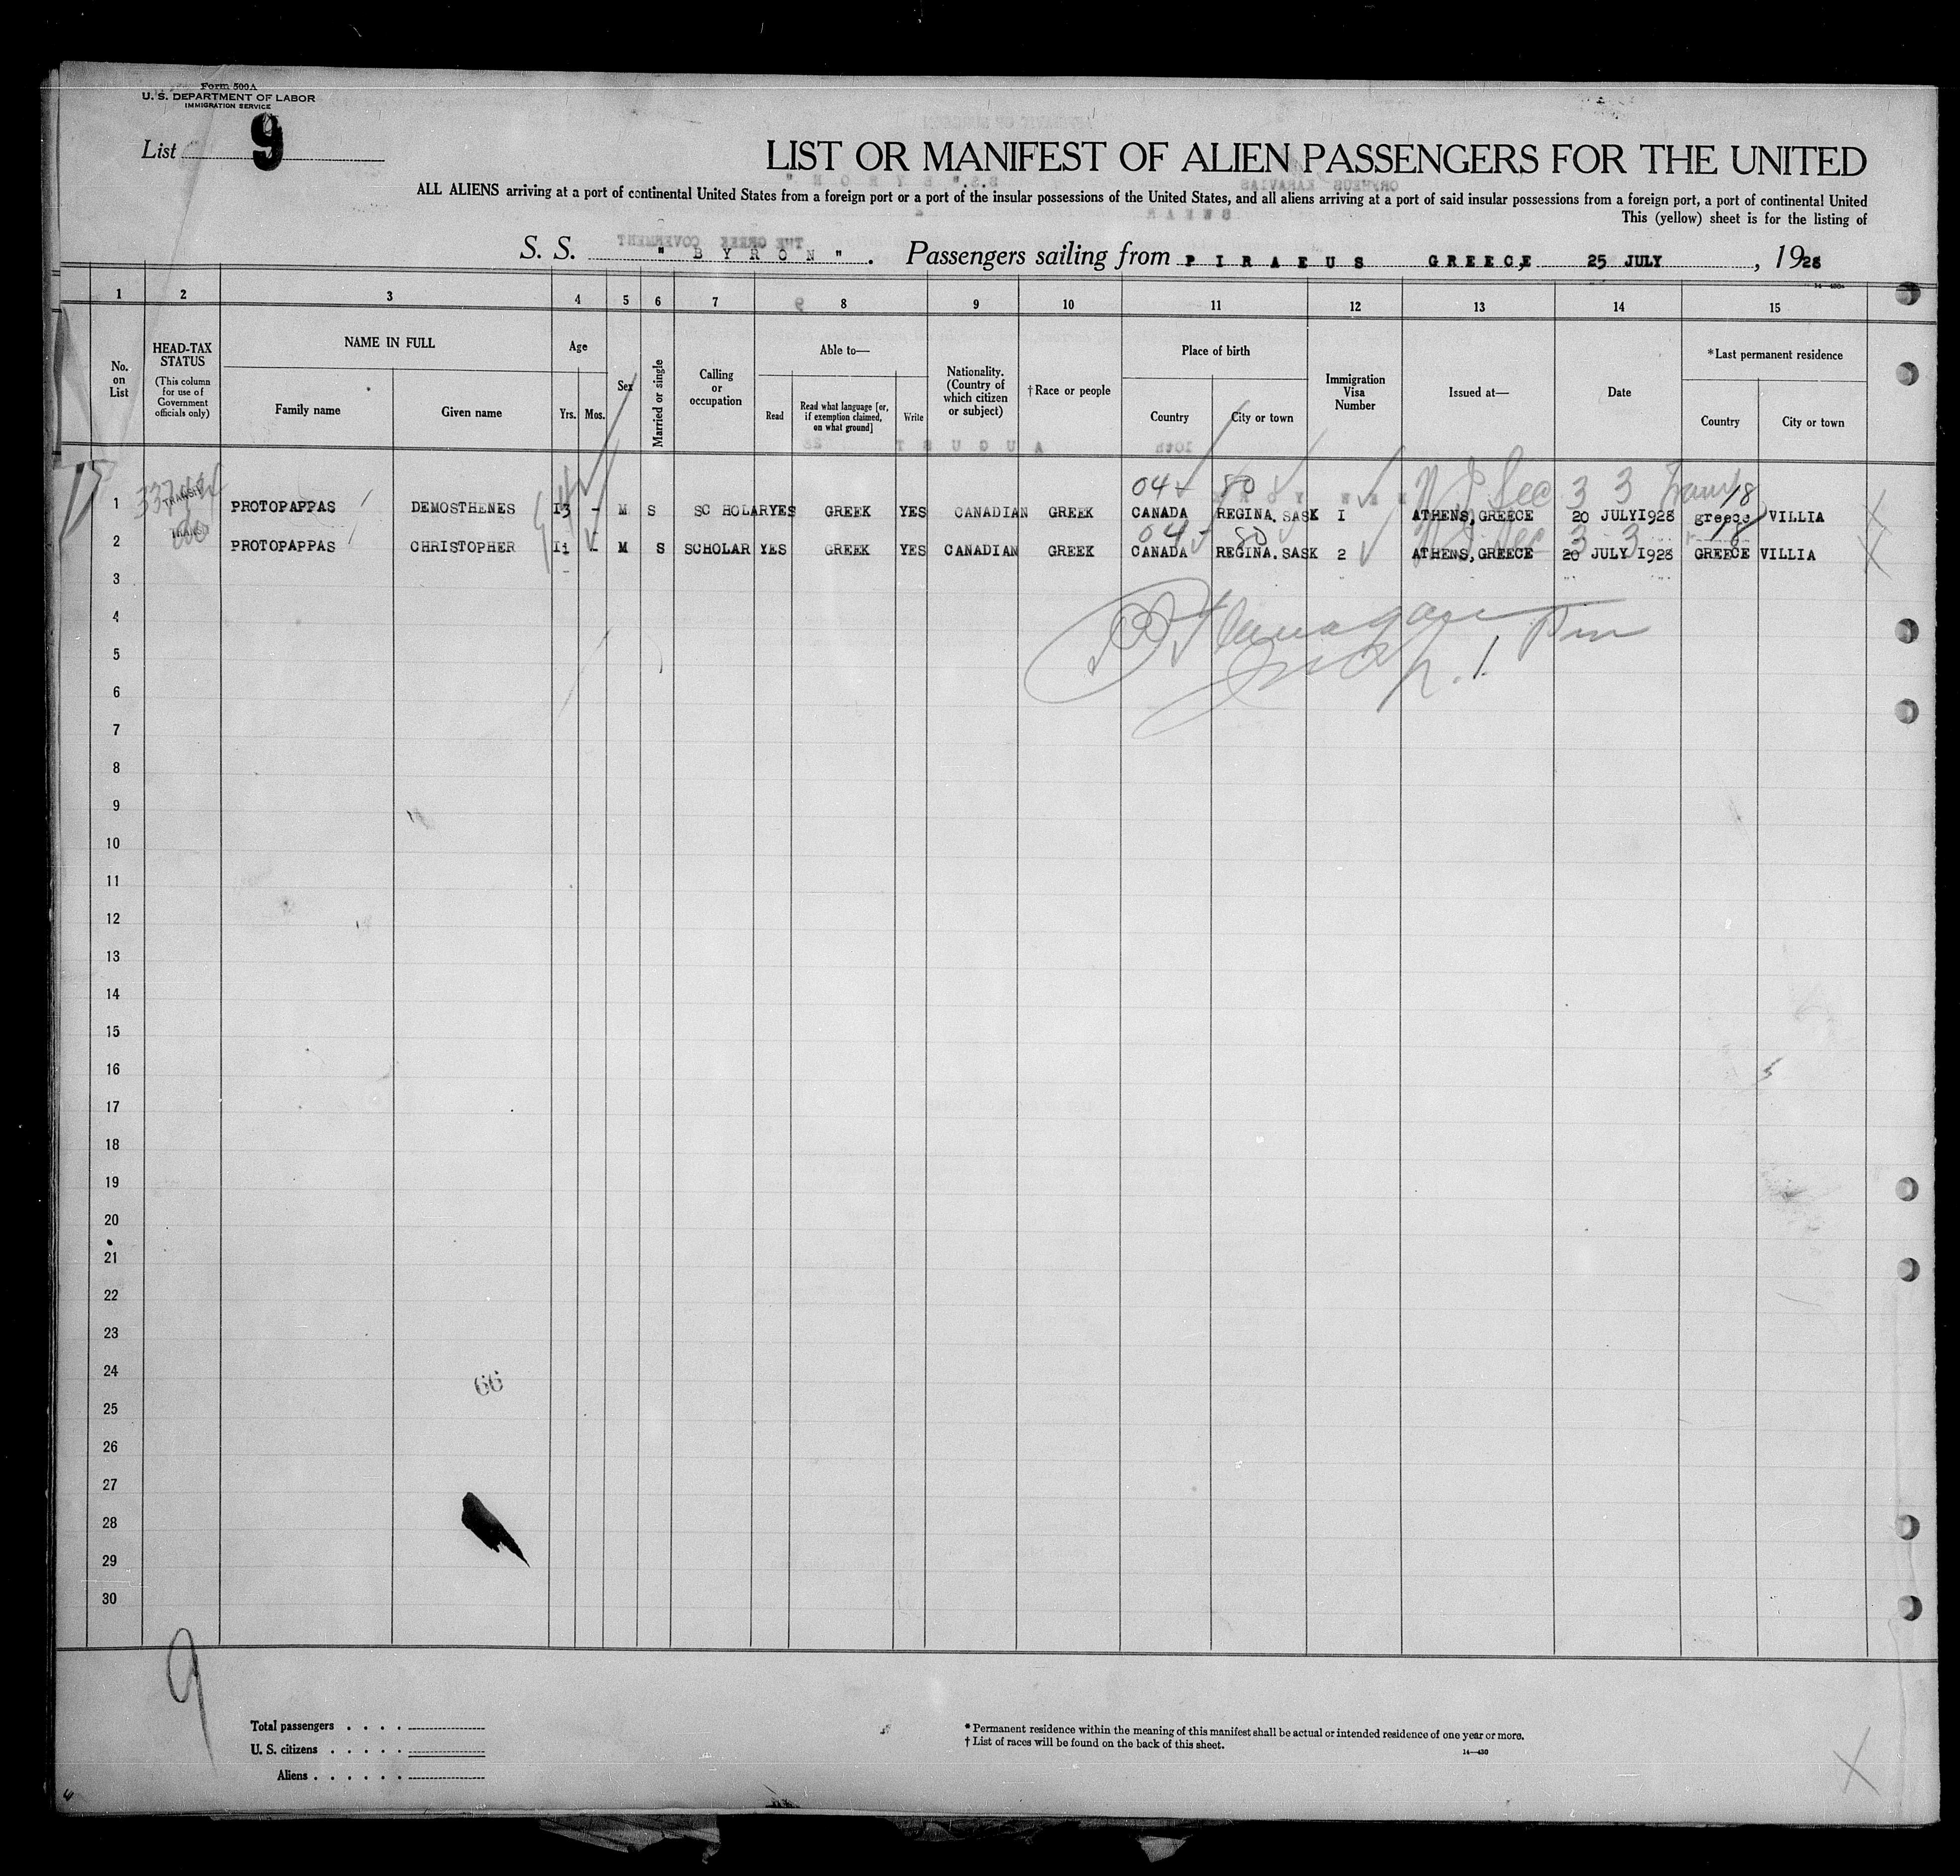 Form 500A
U. S. DEPARTMENT OF LABOR
IMMIGRATION SERVICE
List 9
LIST OR MANIFEST OF ALIEN PASSENGERS FOR THE UNITED
ALL ALIENS arriving at a port of continental United States from a foreign port or a port of the insular possessions of the United States, and all aliens arriving at a port of said insular possessions from a foreign port, a port of continental United
This (yellow) sheet is for the listing of
S. S. " B Y R O N " . Passengers sailing from P I R A E U S G R E E C E, 25 JULY , 1928
1 2 3 4 5 6 7 8 9 10 11 12 13 14 15
No. on List
HEAD-TAX STATUS
(This column for use of Government officials only)
NAME IN FULL
Family name
Given name
Age
Yrs.
Mos.
Sex
Married or single
Calling or occupation
Able to—
Read
Read what language [or, if exemption claimed, on what ground]
Write
Nationality. (Country of which citizen or subject)
†Race or people
Place of birth
Country
City or town
Immigration Visa Number
Issued at—
Date
*Last permanent residence
Country
City or town
04 80 3 3 18
1 TRANSIT PROTOPAPPAS DEMOSTHENES I3 - M S SC HOLAR YES GREEK YES CANADIAN GREEK CANADA REGINA. SASK I ATHENS, GREECE 20 JULY I928 greece VILLIA
04 80 3 3 18
2 PROTOPAPPAS CHRISTOPHER Ii - M S SCHOLAR YES GREEK YES CANADIAN GREEK CANADA REGINA. SASK 2 ATHENS, GREECE 20 JULY I928 GREECE VILLIA
3
4
5
6
7
8
9
10
11
12
13
14
15
16
17
18
19
20
21
22
23
24
66
25
26
27
28
29
30
9
Total passengers . . . .
U. S. citizens . . . . .
Aliens . . . . . .
* Permanent residence within the meaning of this manifest shall be actual or intended residence of one year or more.
† List of races will be found on the back of this sheet.
14—430